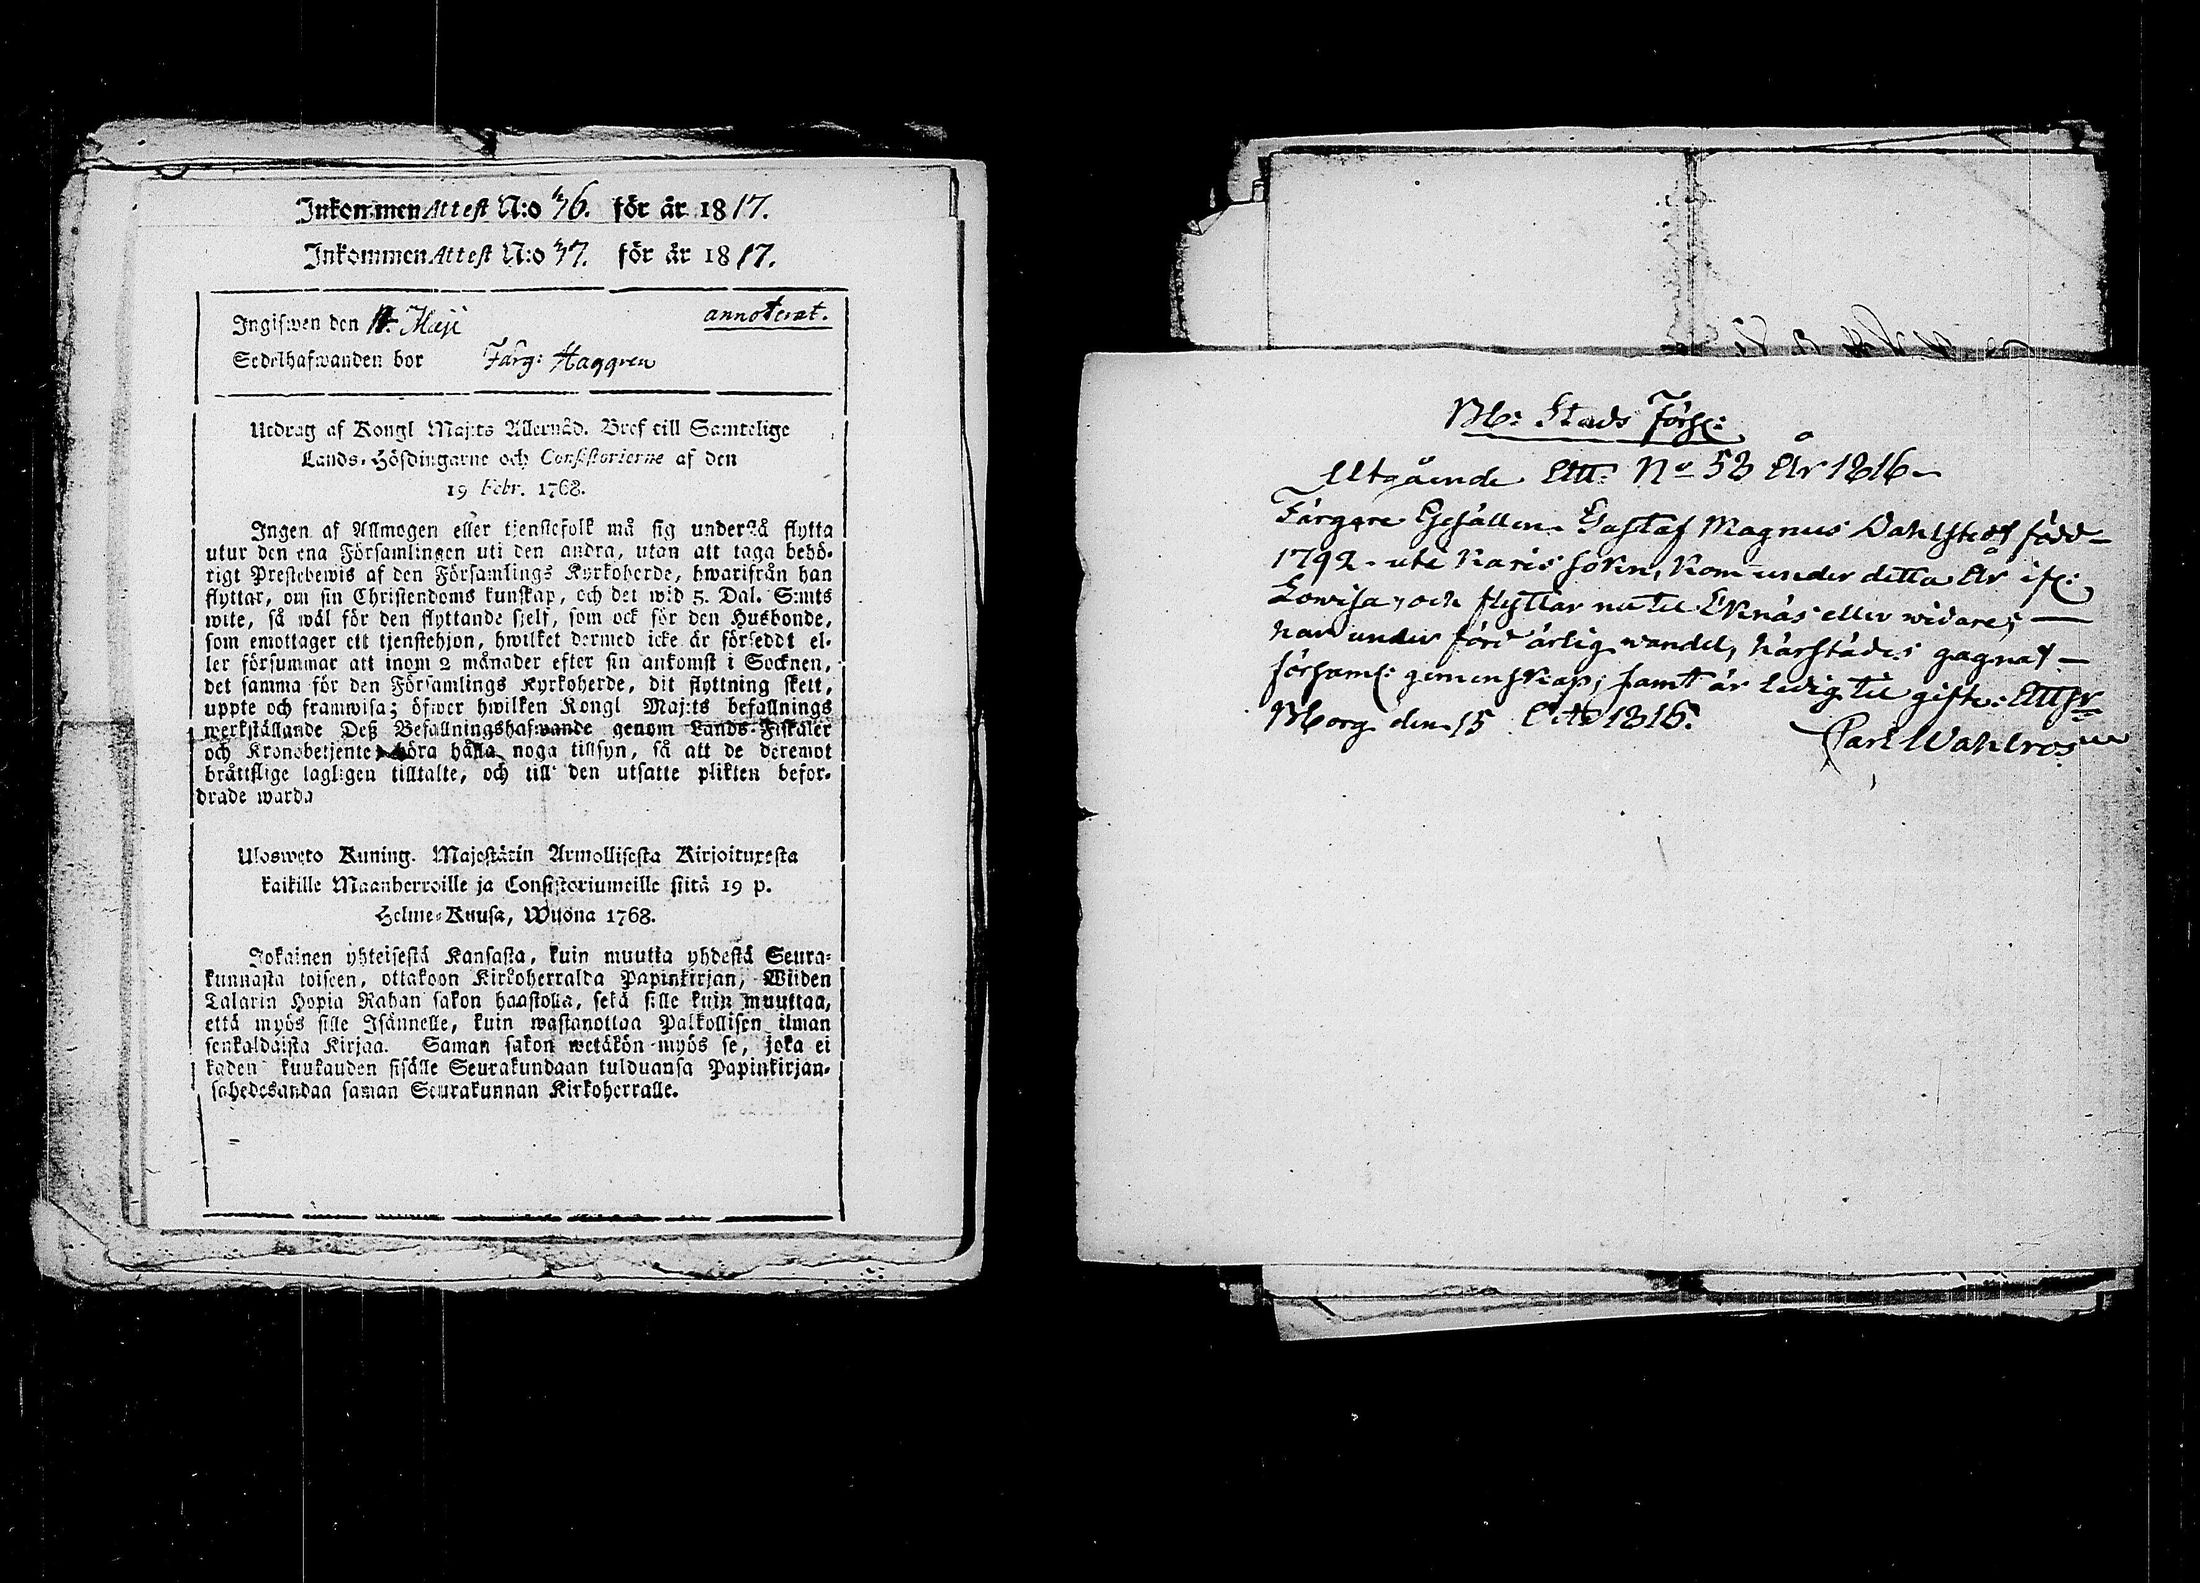 Inkommen Attest N:o 46. för år 1817.
Inkommen Attest N:o 47. för år 1817.
Ingifwen den 14. Maji annoterat.
Sedelhafwanden bor Färg: Haggren
Utdrag af Kongl Maj:ts Allernåd. Bref till Samtelige
Lands-Höfdingarne och Consistorierne af den
19 Febr. 1768.
Ingen af Allmogen eller tjenstefolk må sig understå flytta
utur den ena Församlingen uti den andra, utan att taga behö-
rigt Prestebewis af den Församlings Kyrkoherde, hwarifrån han
flyttar, om sin Christendoms kunskap, och det wid 5. Dal. S:mts
wite, så wäl för den flyttande sjelf, som ock för den Husbonde,
som emottager ett tjenstehjon, hwilket dermed icke är försedt el-
ler försummar att inom 2 månader efter sin ankomst i Socknen,
det samma för den Församlings Kyrkoherde, dit flyttning skett,
uppte och framwisa; öfwer hwilken Kongl Maj:ts befallnings
werkställande Deß Befallningshafwande genom Lands-Fiskaler
och Kronobetjente höra hålla noga tillsyn, så att de deremot
bråttslige lagligen tilltalte, och till den utsatte plikten befor-
drade warda
Ulosweto Kuning. Majestätin Armollisesta Kirjoituxesta
kaikille Maanherroille ja Consistoriumeille siitä 19 p.
Helme-Kuusa, Wuona 1768.
Jokainen yhteisestä Kansasta, kuin muutta yhdestä Seura-
kunnasta toiseen, ottakoon Kirkoherralda Papinkirjan, Wiiden
Talarin Hopia Rahan sakon haastolla, sekä sille kuin muuttaa,
että myös sille Isännelle, kuin wastanottaa Palkollisen ilman
senkaldaista Kirjaa. Saman sakon wetäkön myös se, joka ei
kaden kuukauden sisälle Seurakundaan tulduansa Papinkirjan-
sahedesandaa saman Seurakunnan Kirkoherralle.
Bb: Stads Förs:
Utgående Att: No 58 År 1816
Färgare Gesällen Gustaf Magnus Dahlstedt född
1792 uti Karis sokn, kom under detta År if:
Lowisa, och flyttar nu til Eknäs eller widare;
har under förd ärlig wandel, härstädes gagnat
församl: gemenskap; samt är ledig til gifte. Att:r
Bborg den 15 Octb 1816.
Carl Wahlroos